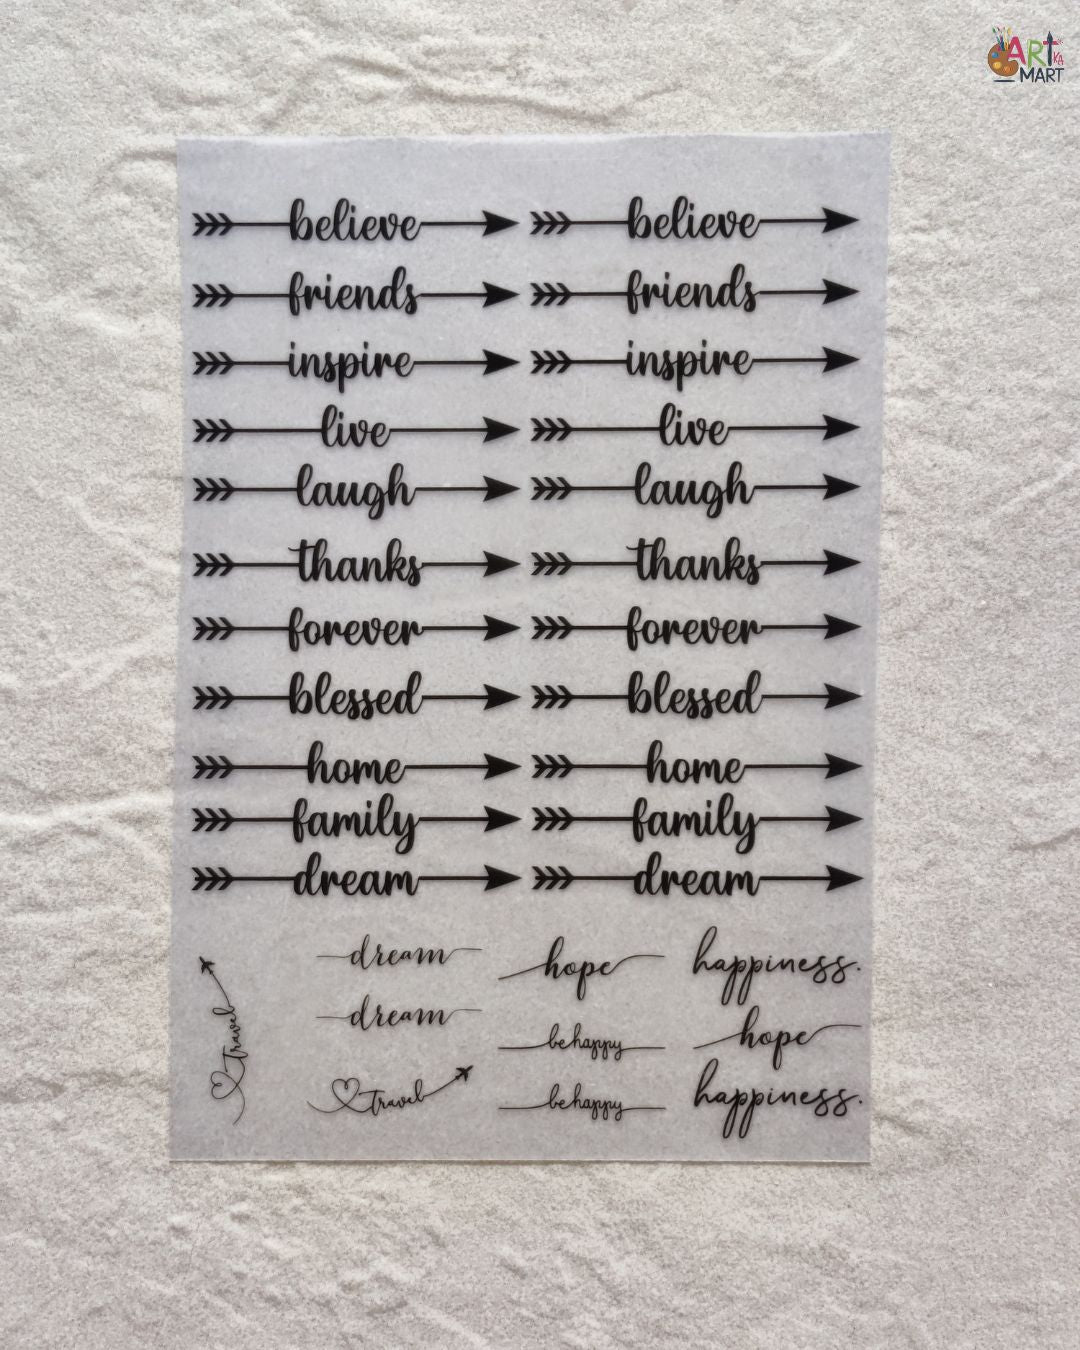 ART KA
MART
believe believe
friends friends
inspire inspire
live live
laugh laugh
thanks thanks
forever forever
blessed blessed
home home
family family
dream dream
dream hope happiness.
dream be happy hope
travel travel be happy happiness.